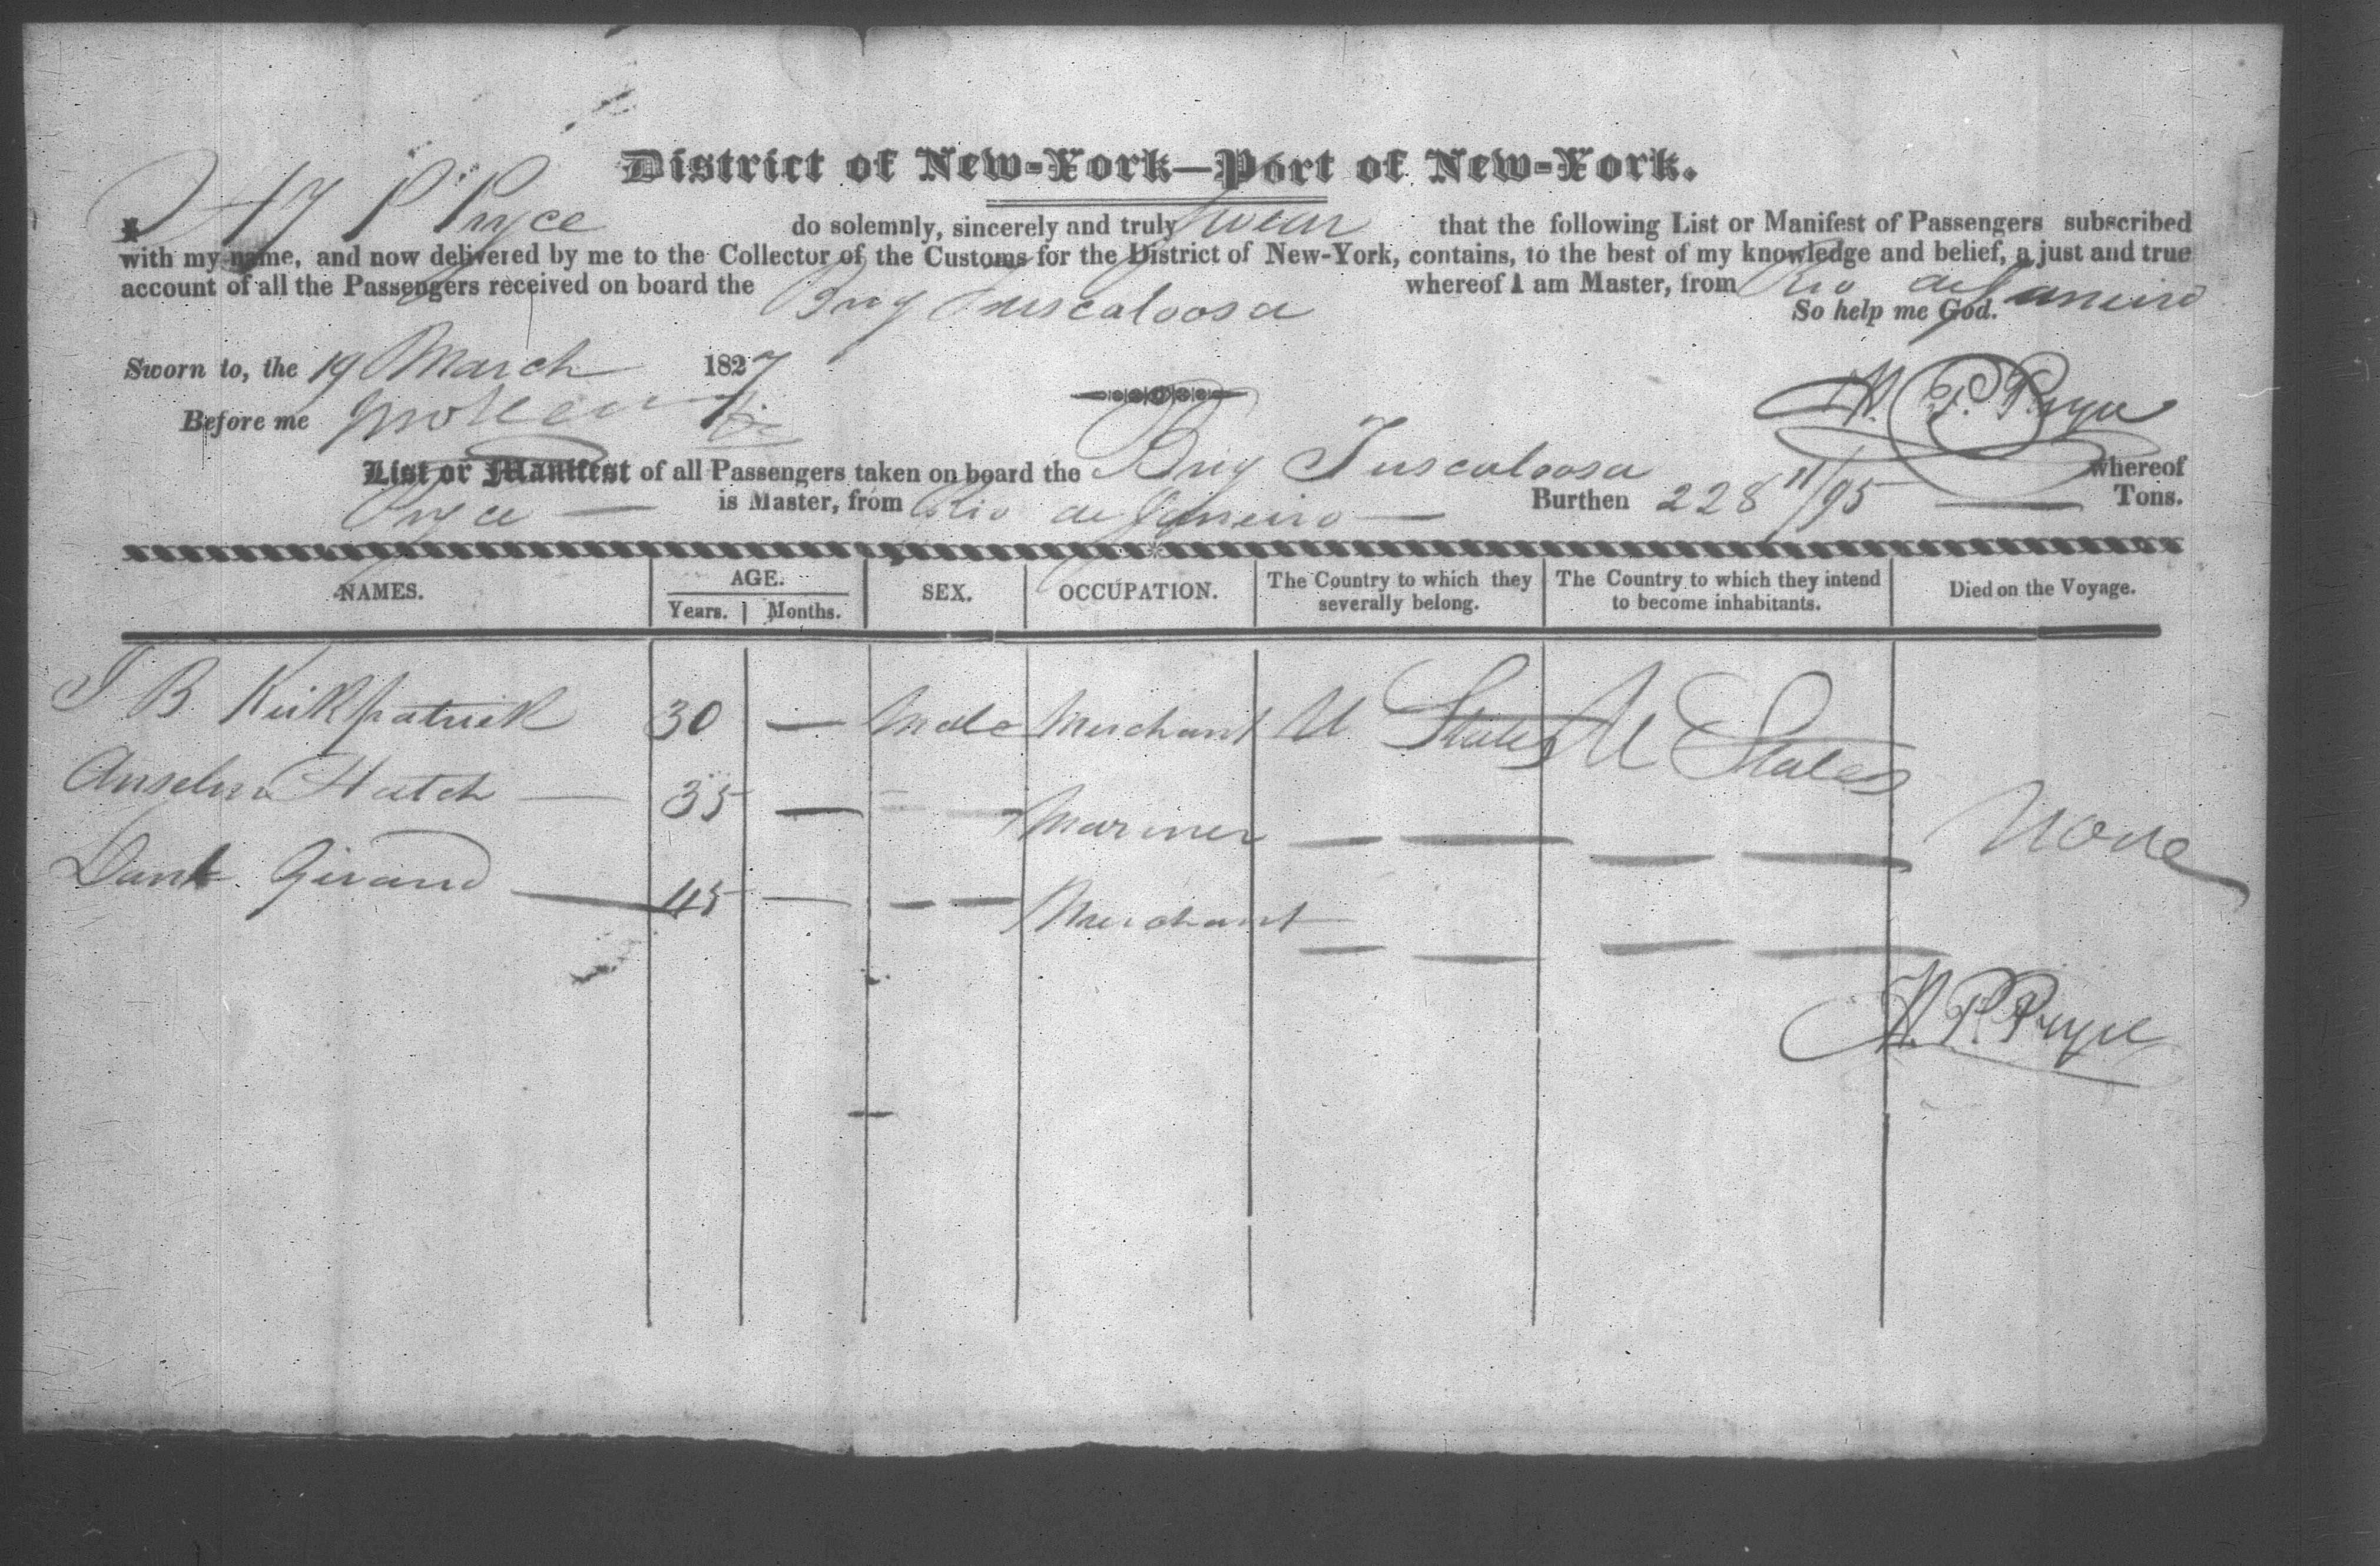 District of New-York—Port of New-York.
I Hy P Pryce do solemnly, sincerely and truly swear that the following List or Manifest of Passengers subscribed
with my name, and now delivered by me to the Collector of the Customs for the District of New-York, contains, to the best of my knowledge and belief, a just and true
account of all the Passengers received on board the Brig Tuscaloosa whereof I am Master, from Rio de Janeiro
So help me God.
Sworn to, the 19 March 1827
Before me
H. P. Pryce
List or Manifest of all Passengers taken on board the Brig Tuscaloosa whereof
Pryce — is Master, from Rio de Janeiro — Burthen 228 11/95 — Tons.
NAMES. AGE. Years. Months. SEX. OCCUPATION. The Country to which they severally belong. The Country to which they intend to become inhabitants. Died on the Voyage.
J B Kirkpatrick 30 — Male Merchant U States U States
Anselm Hatch — 35 — — — Mariner — — — — None
Danl Girand — 45 — — — Merchant — — — —
H. P. Pryce